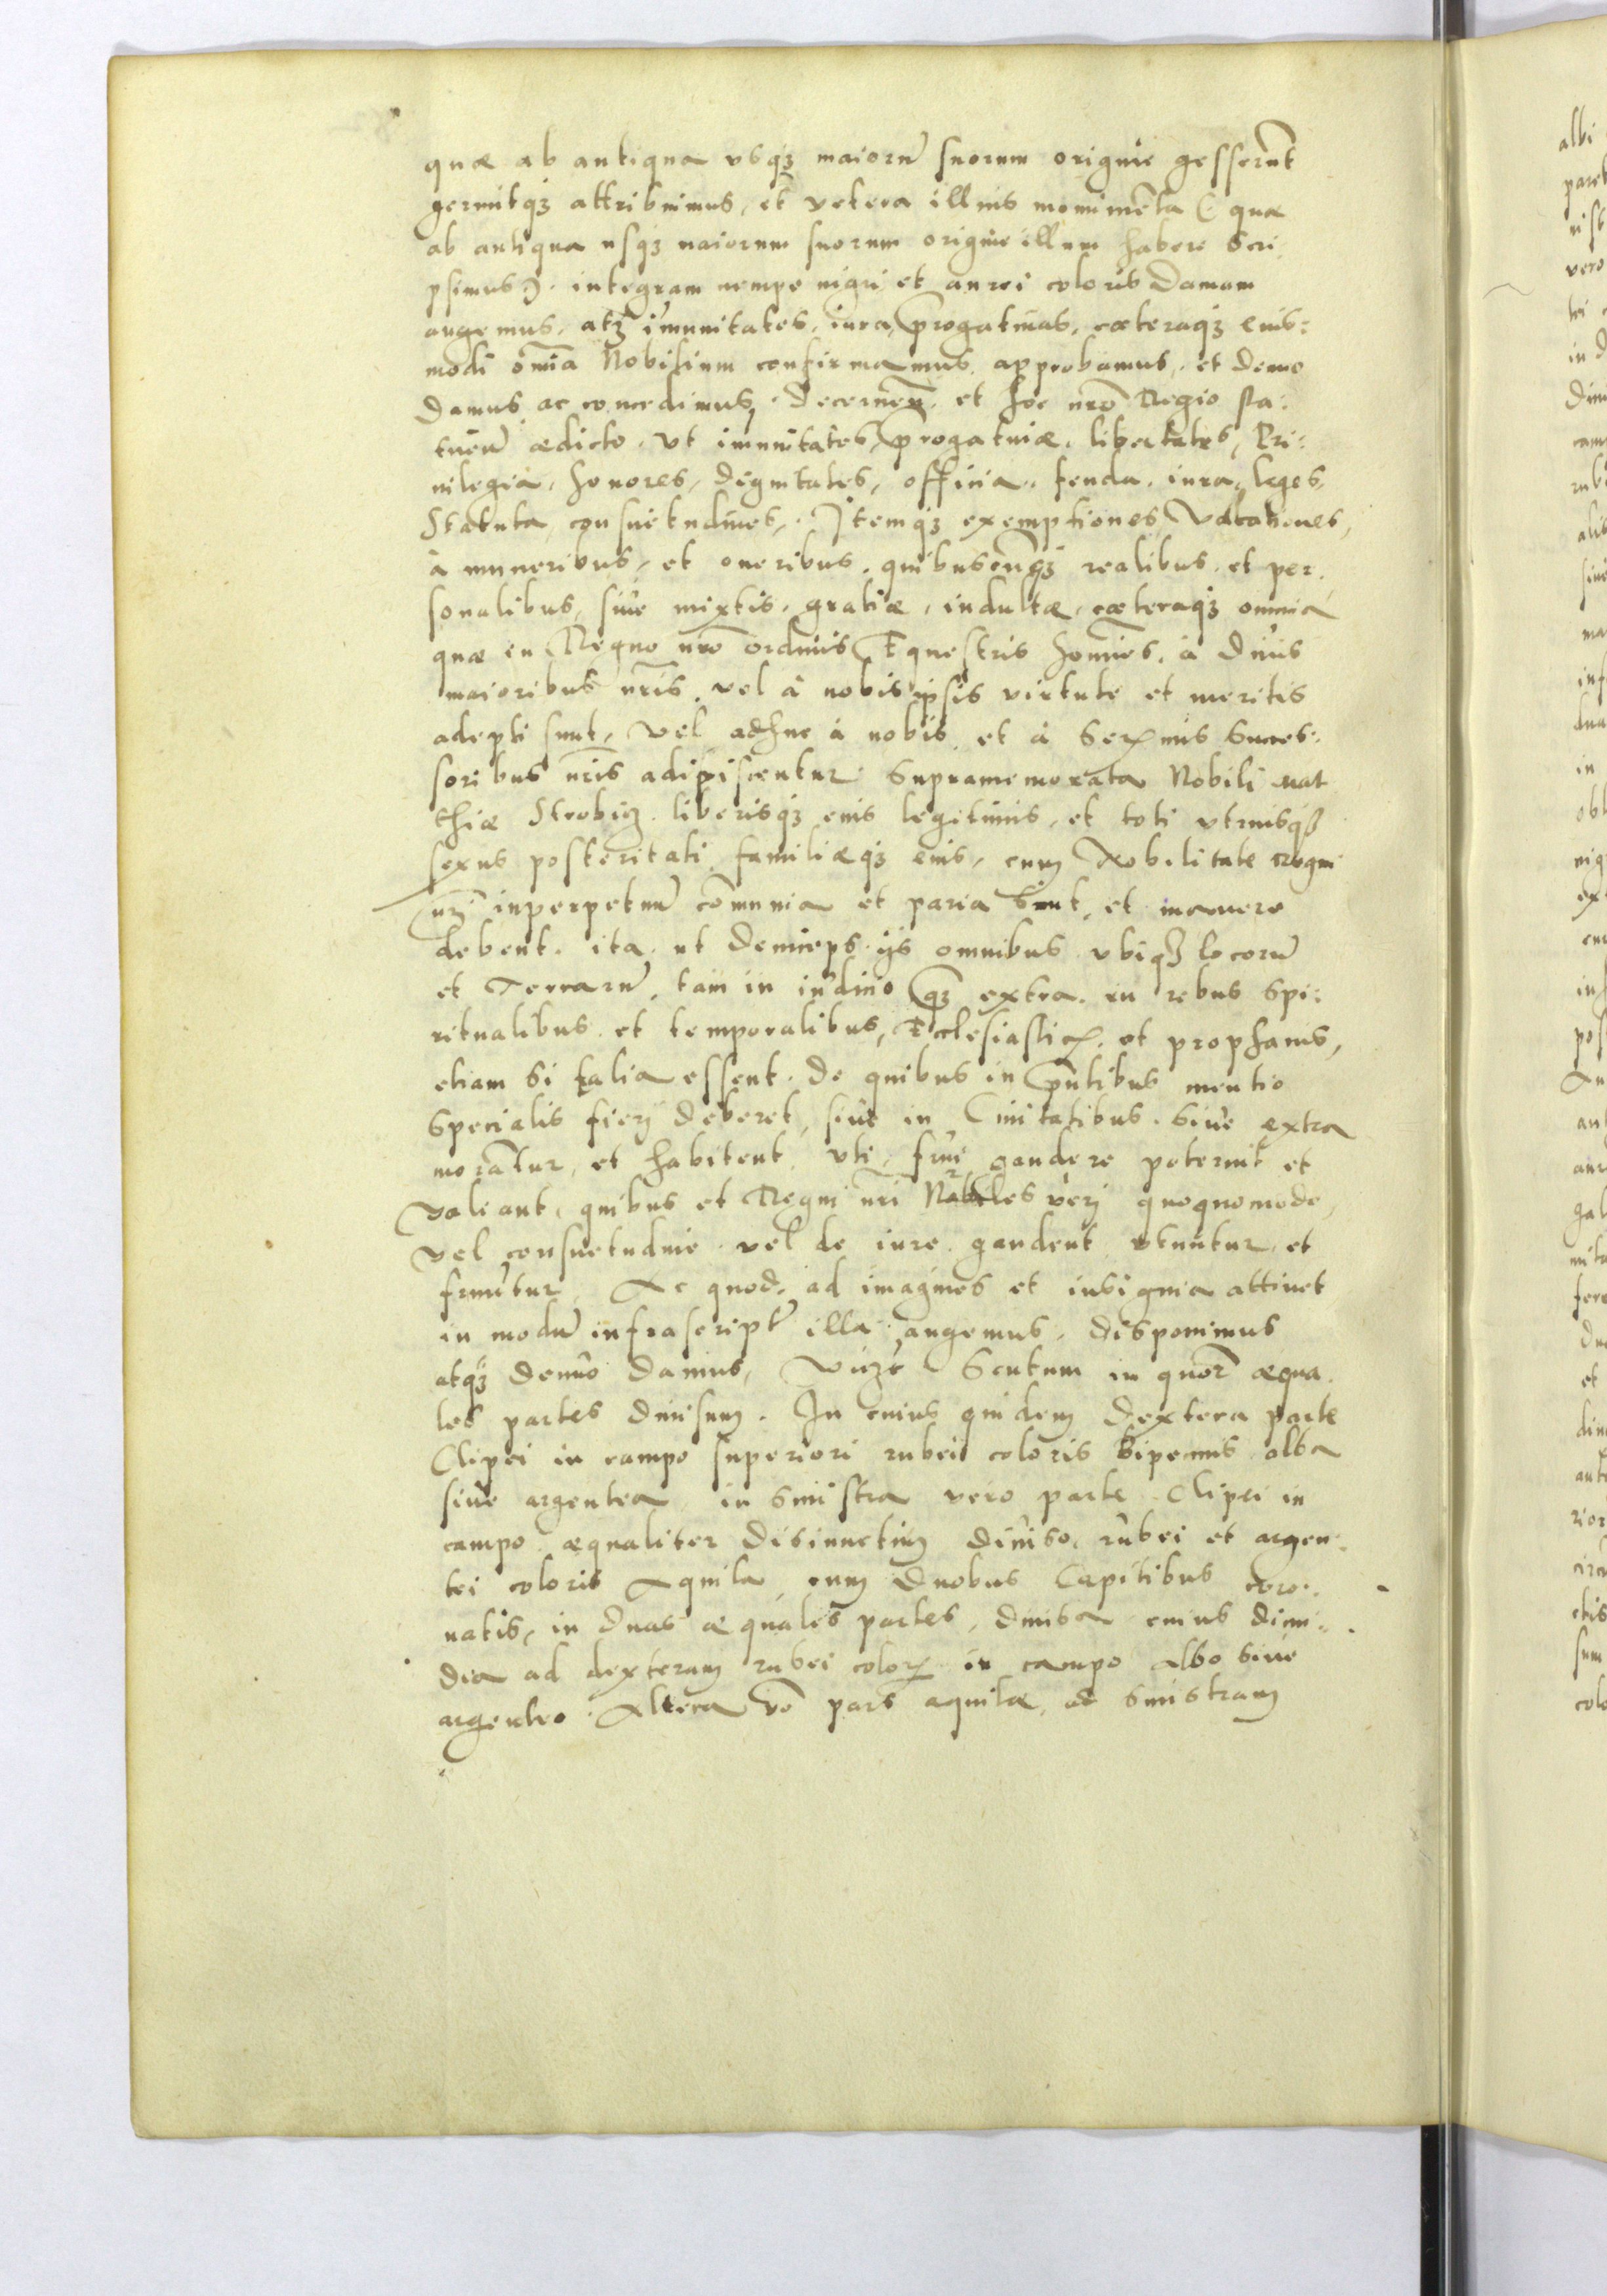 quæ ab antiqua vsqꝫ maiorũ suorum origine gesserũt
geruntqꝫ attribuimus, et vetera illius monimẽta (quæ
ab antiqua usqꝫ maiorum suorum origine illum habere scri
psimus). integram nempe nigri et aurei coloris Damam
augemus, atqꝫ im̃unitates, iura, p̃rogatiuas, cæteraqꝫ eius:
modi om̃ia Nobilium confirmamus, approbamus, et denuo
damus ac concedimus, decernen̄ et hoc nrõ Regio sta:
tuen̄ ædicto. vt imunitates, p̃rogatiuæ, libertates, Pri:
uilegia, honores, dignitates, officia, feuda, iura, leges,
Statuta, consuetudines, Itemqꝫ exemptiones vacationes,
à muneribus, et oneribus, quibuscũqꝫ realibus et per
sonalibus, siue mixtis, gratiæ, indultæ, cæteraqꝫ omnia
quæ in Regno nrõ ordinis Equestris hom̃ies, à Diuis
maioribus nrĩs, vel à nobis ipsis virtute et meritis
adepti sunt, vel adhuc à nobis et à Serꝫmis Succes:
soribus nrĩs adipiscentur Supramemorata Nobili Mat
thiæ Strobicz liberisqꝫ eius legitimis, et toti vtriusqꝫ
sexus posteritati familiæqꝫ eius, cum Nobilitate Regni
nrĩ inperpetuũ com̃unia et paria sint, et manere
debent. ita ut deinceps ijs omnibus vbiqꝫ locorũ
et Terrarũ, tam in iudicio qꝫ extra, in rebus Spi:
ritualibus et temporalibus, Ecclesiasticꝫ et prophanis,
etiam si talia essent. de quibus in p̃ntibus mentio
Specialis fierj deberet, siue in Ciuitatibus. Siue extra
morantur, et habitent, vti, frui, gaudere poterint et
valeant, quibus et Regni nrĩ Nobiles verj quoquomodo,
vel consuetudine vel de iure gaudent vtuntur et
fruũtur. Ac quod ad imagines et insignia attinet
in modũ infrascript̃ illa augemus, disponimus
atqꝫ denuo damus, vizt̃ Scutum in quor̃ æqua
les partes diuisum. In cuius quidem dextera parte
Clipei in campo superiori rubei coloris bipennis alba
siue argentea in sinistra vero parte Clipei in
campo æqualiter disiunctim diuiso, rubei et argen:
tei coloris Aquila cum duobus Capitibus coro:
natis, in duas æquales partes, diuisa cuius dimi:
dia ad dexteram rubei colorꝫ in campo albo siue
argenteo. Altera võ pars aquilæ ad sinistram